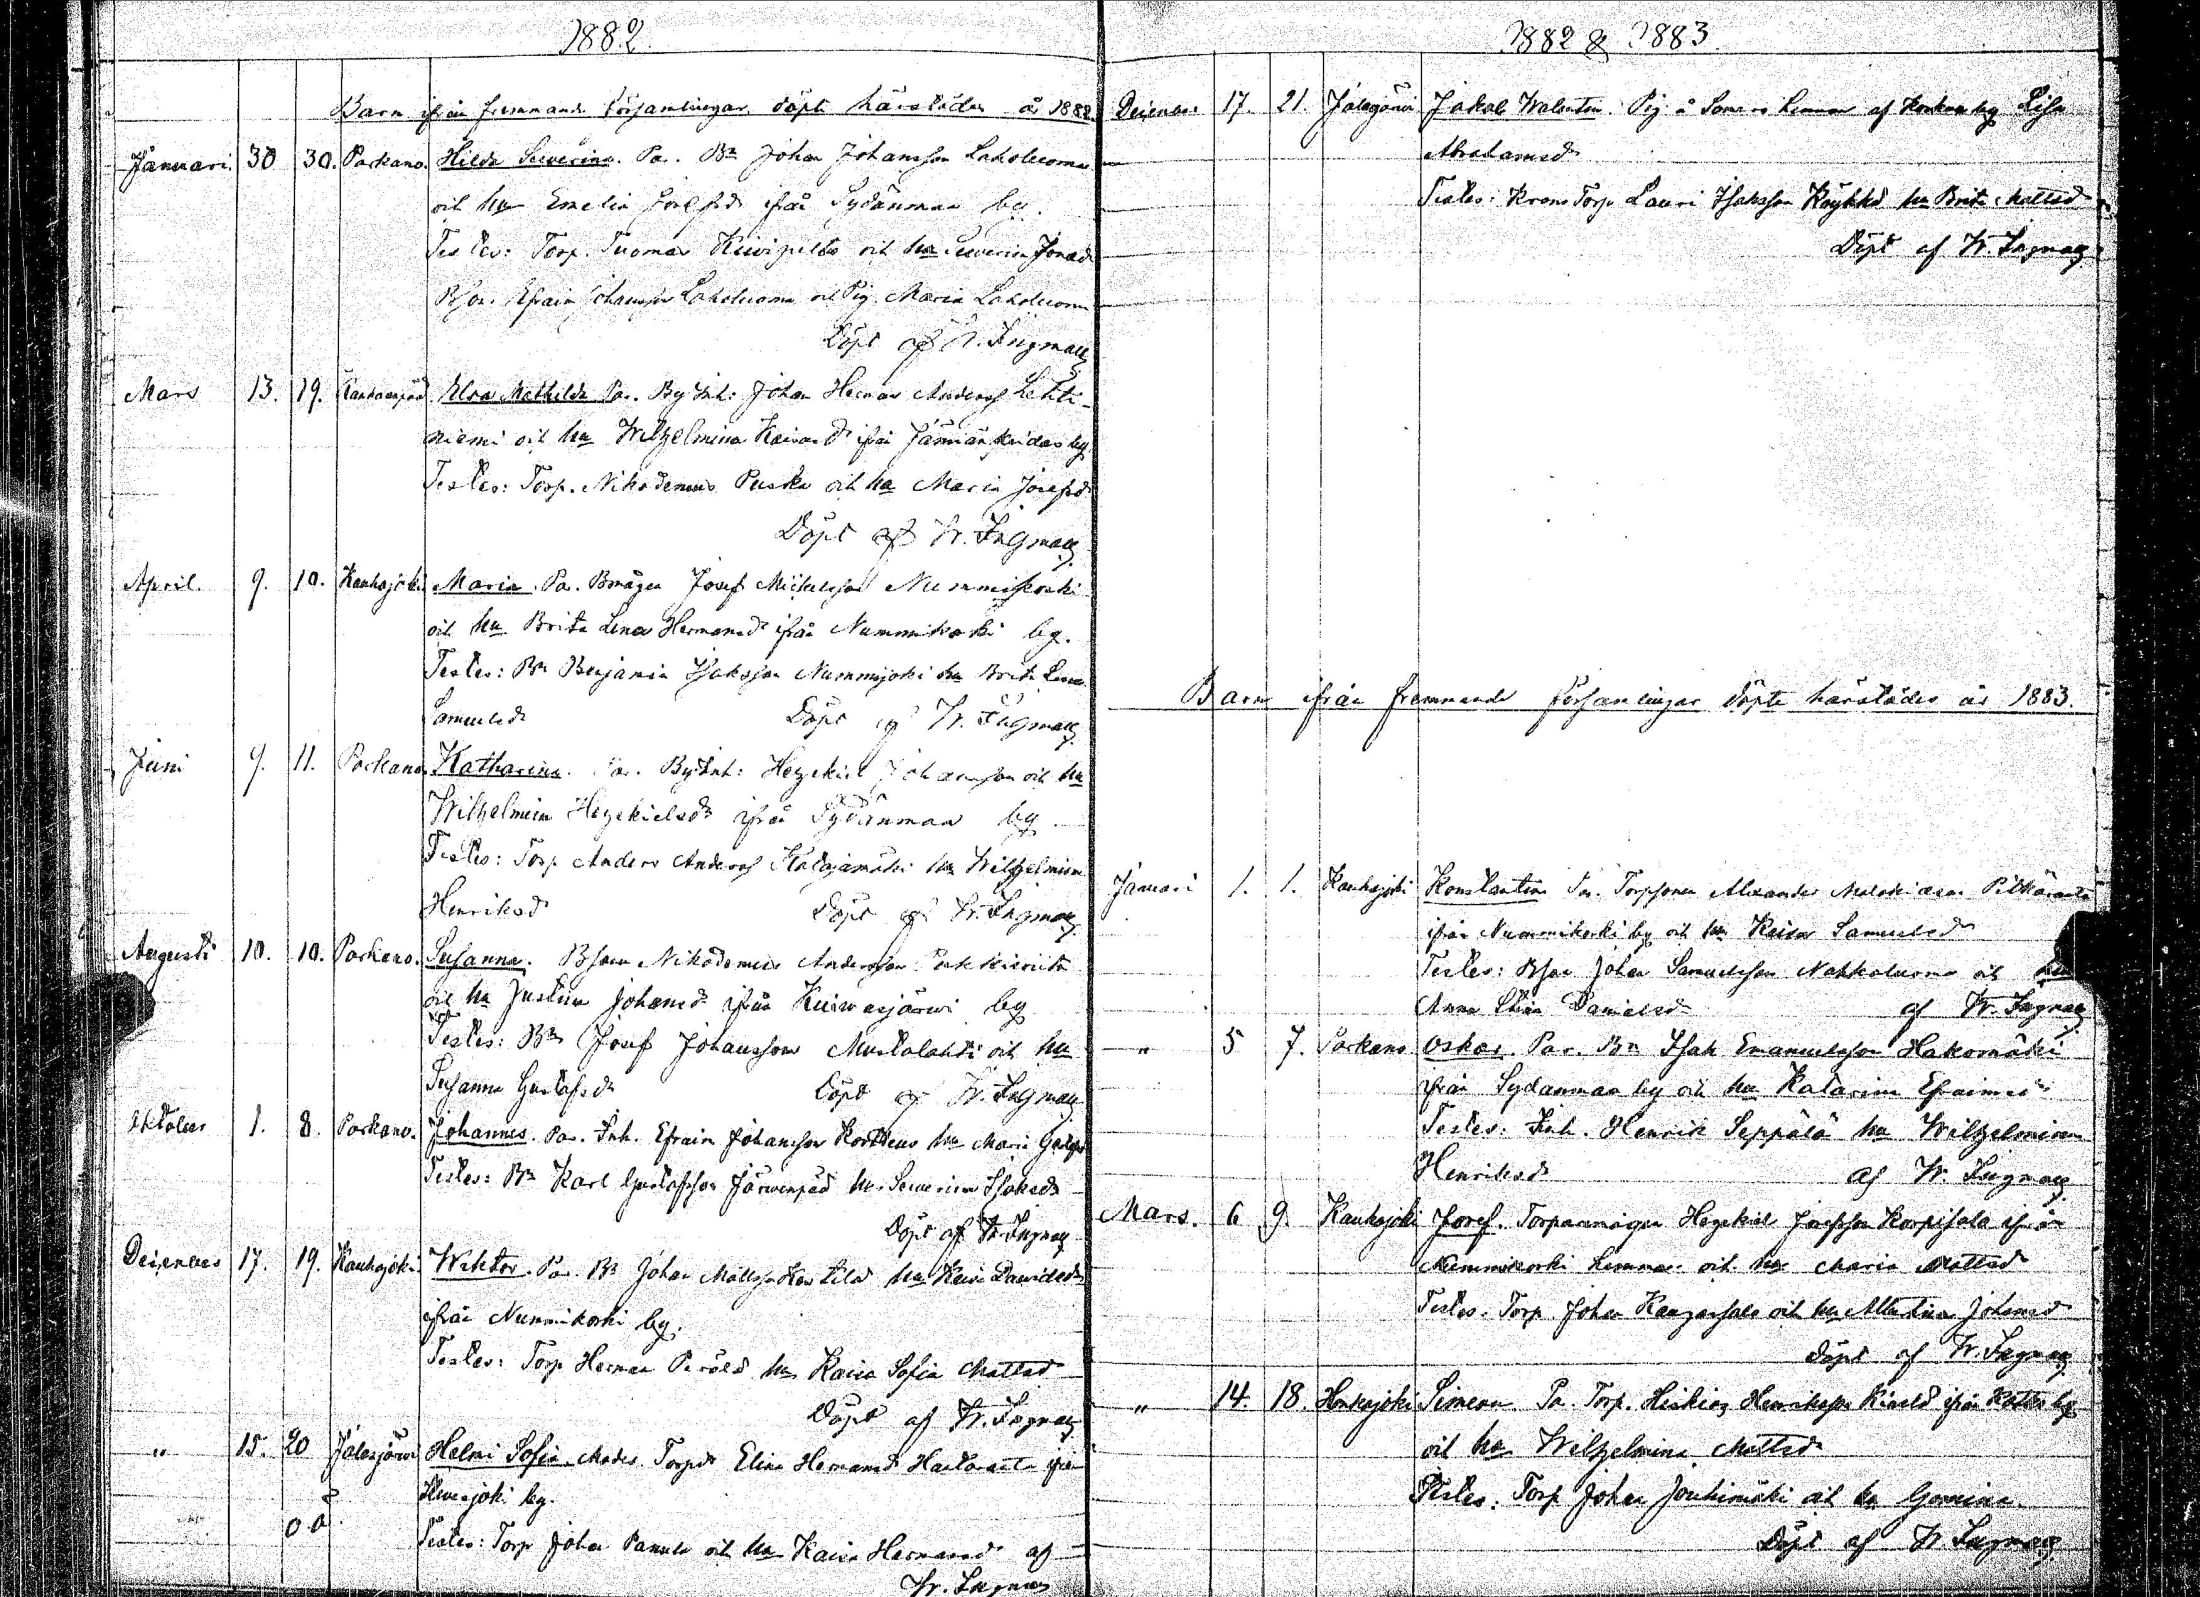 1882.
Barn ifrån fremmande församlingar döpte härstädes år 1882.
Januari. 30 30. Parkano. Hilda Severina. Pa. Bn Johan Johansson Laholuoma
oit hu Emelia Josefsdr ifrån Sydänmaa by.
Testes: Torp. Tuomas Kiwipelto oit hu Severina Jonasdr
Bson. Efraim Johansson Laholuoma oit Pig. Maria Laholuoma
Döpt af W. Ingman
Mars 13. 19. Kankaanpää Elsa Mathilda Pa. By Inh: Johan Herman Anderss Lehti-
niemi oit hu Wilhelmina ifrån by
Testes: Torp. Nikodemus Puska oit hu Maria Josefsdr
Döpt af W. Ingman
April. 9. 10. Kauhajoki Maria. Pa. Bmågen Josef Michelsson Nummikoski
oit hu Brita Lena Hermansdr ifrån Nummikoski by.
Testes: Bn Benjamin Isaksson Nummijoki hu Brita Lena
Samuelsdr Döpt af W. Ingman
Juni 9. 11. Parkano Katharina. Pa. By Inh: Hezekiel Johansson oit hu
Wilhelmina Hezekielsdr ifrån Sydänmaa by
Testes: Torp Anders Anderss Katajamäki hu Wilhelmina
Henriksdr Döpt af W. Ingman
Augusti 10. 10. Parkano. Susanna. Bson Nikodemus Andersson
oit hu Justina Johansdr ifrån Kuiwasjärwi by
Testes: Bn Josef Johansson Mustalahti oit hu
Susanna Gustafsdr Döpt af W. Ingman
Oktober 1. 8. Parkano. Johannes. Pa. Inh. Efraim Johansson hu Maria
Testes: Bn Karl Gustafsson Järwenpää hu Severina Isaksdr
Döpt af W. Ingman
December 17. 19. Kauhajoki Wiktor. Pa. Bn Johan Mattsson hu Davidsdr
ifrån Nummikoski by.
Testes: Torp Herman Perälä hu Kaisa Sofia Mattsdr
Döpt af W. Ingman
" 15. 20 Jalasjärwi Helmi Sofia. Moder Torpdr Elina Hermansdr ifrån
by.
Testes: Torp Johan Panula oit hu Kaisa Hermansdr af
W. Ingman
1882 & 1883.
December 17. 21. Jalasjärwi Jakob Walentin. Pig. af by Lisa
Abrahamsdr
Testes: Krono Torp Lauri Isaksson Köykkä hu Brita Mattsdr
Döpt af W. Ingman
Barn ifrån fremmande församlingar döpte härstädes år 1883.
Januari 1. 1. Kauhajoki Konstantin Pa. Torpsonen Alexander
ifrån Nummikoski by oit hu Kaisa Samuelsdr
Testes: Bson Johan Samuelsson Nahkaluoma oit
Anna Stina Danielsdr af W. Ingman
" 5 7. Parkano Oskar. Pa. Bn Isak Emanuelsson Hakomäki
ifrån Sydänmaa by oit hu Katarina Efraimsdr
Testes: Inh. Henrik Seppälä hu Wilhelmina
Henriksdr af W. Ingman
Mars. 6 9. Kauhajoki Josef. Torparmågen Hezekiel Josefsson Korpisalo ifrån
Nummikoski hemman oit hu Maria Mattsdr
Testes: Torp. Johan Kangassalo oit hu Albertina Johansdr
Döpt af W. Ingman
" 14. 18. Honkajoki Simeon. Pa. Torp. Hiskias Henriksson ifrån by
oit hu Wilhelmina Mattsdr
Testes: Torp Johan Jouhimäki oit hu
Döpt af W. Ingman